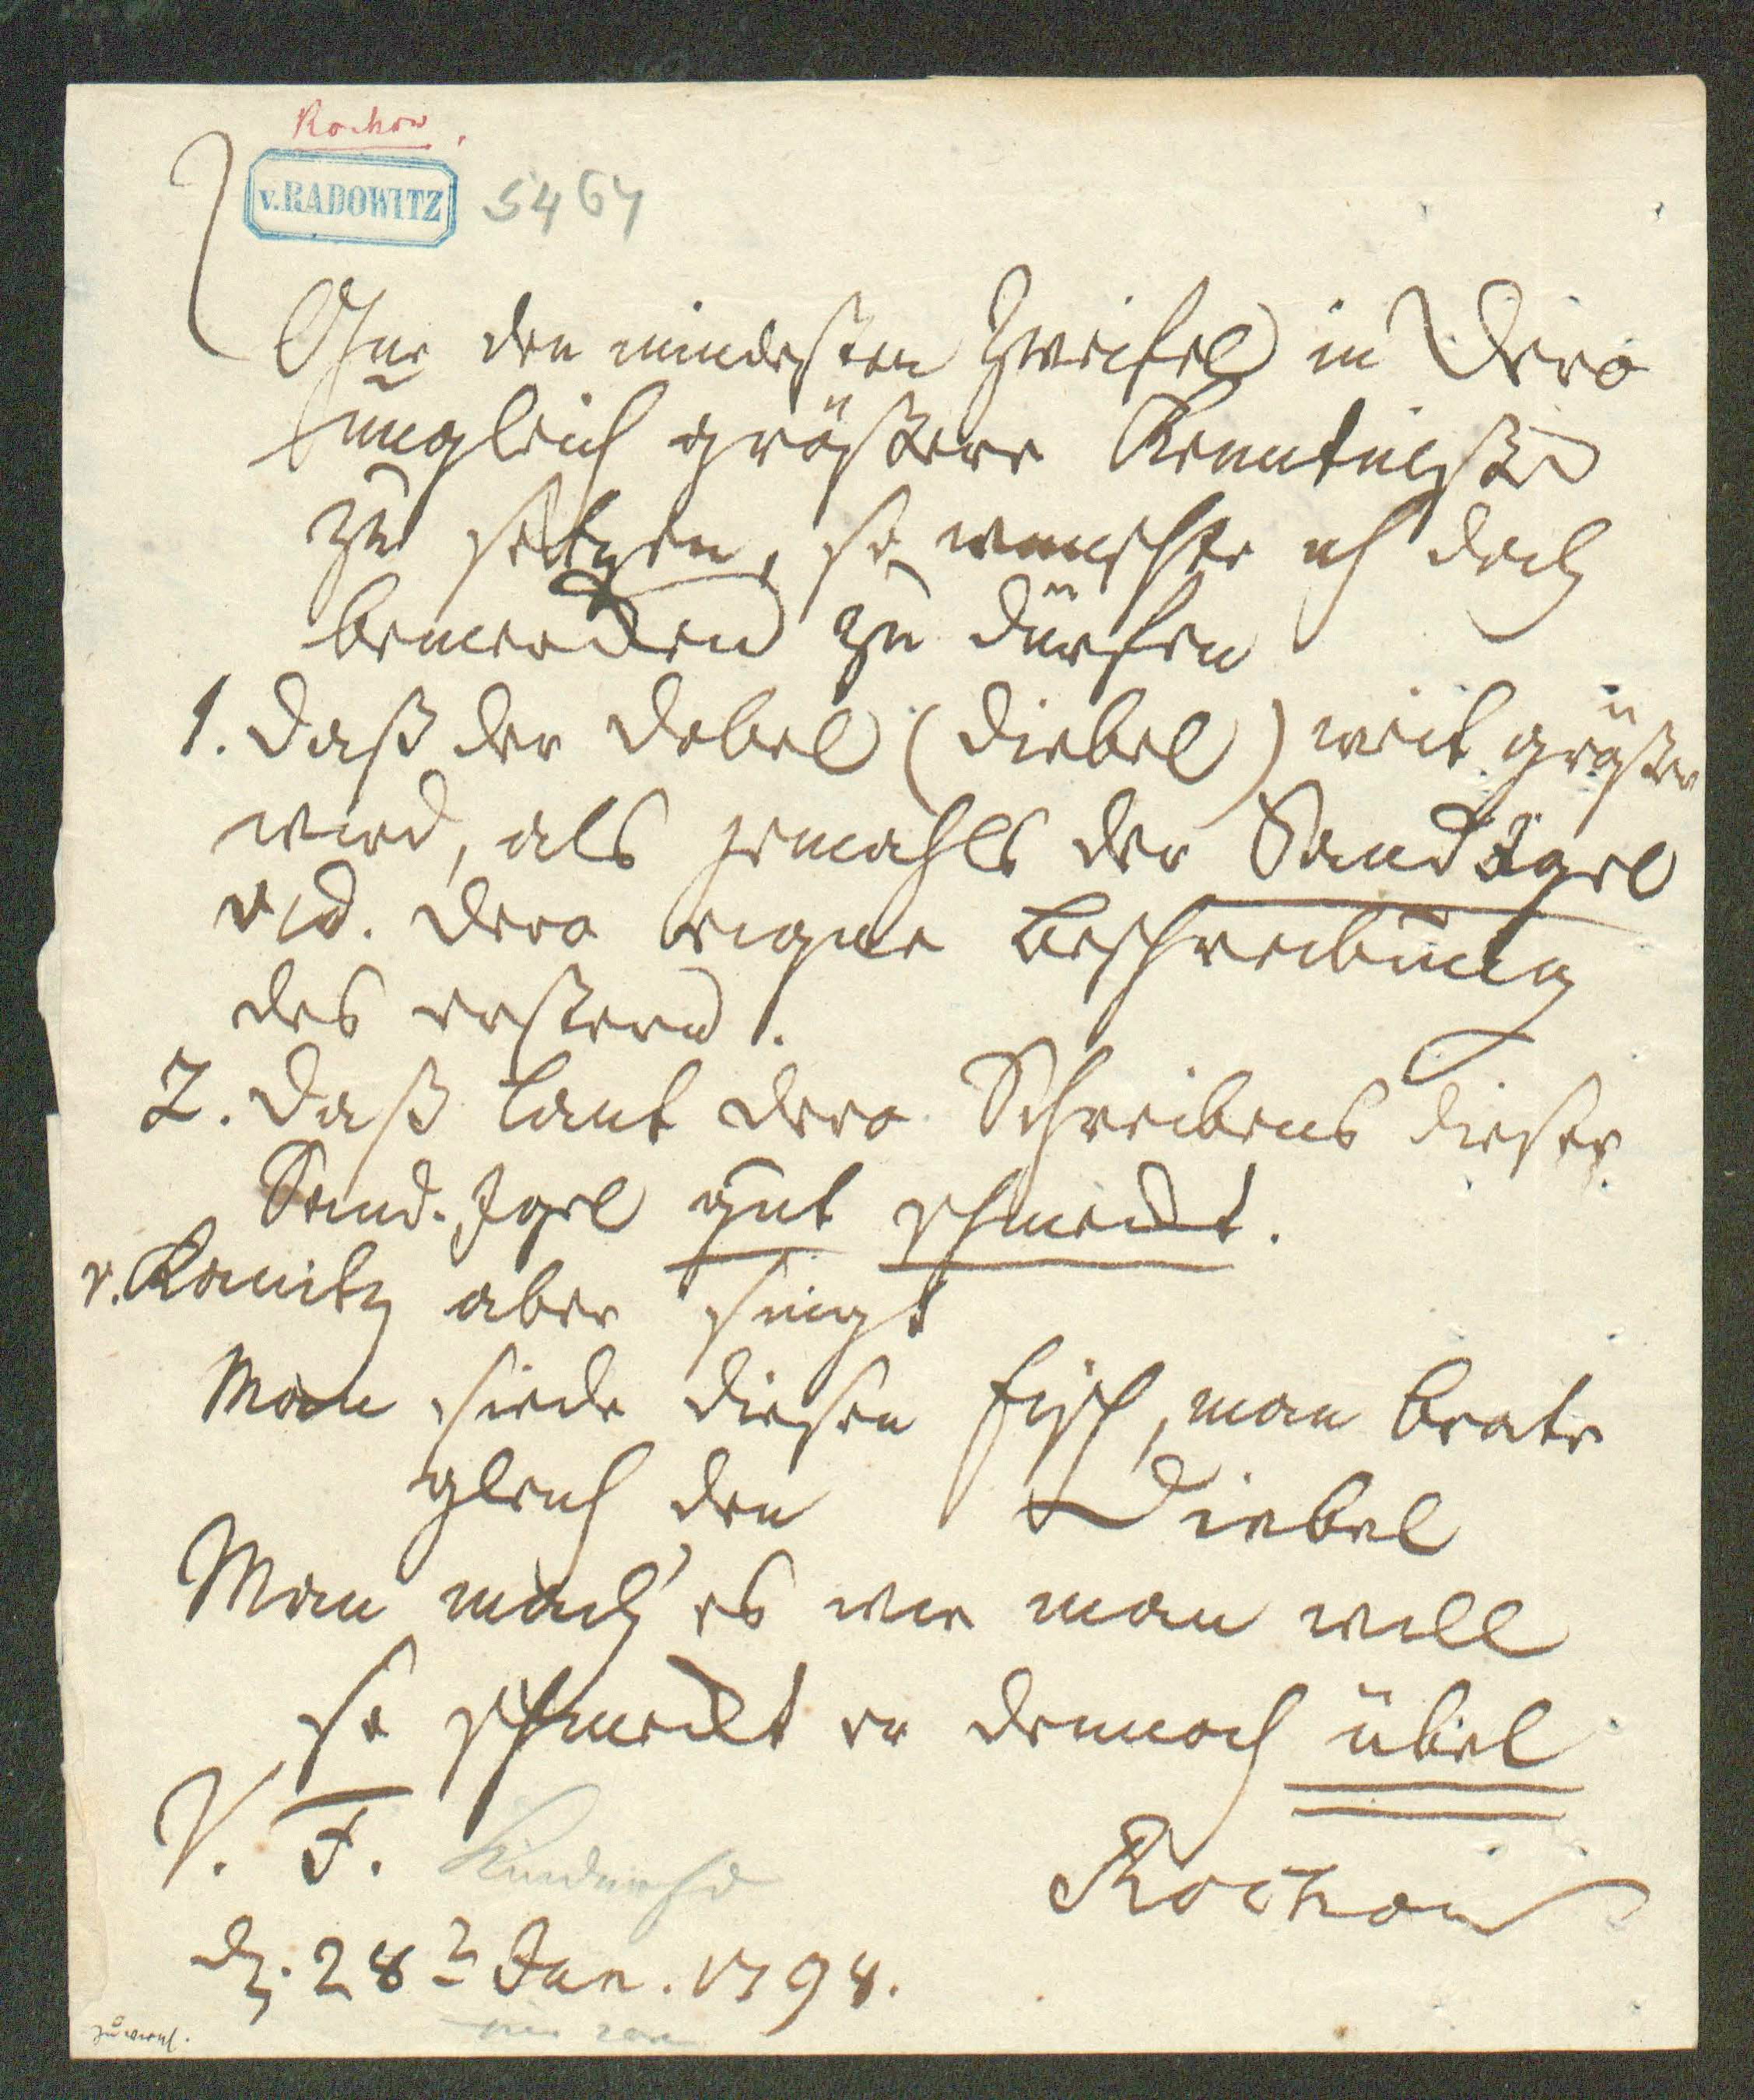 Rochow.
v. RADOWITZ 5464
Ohne den mindesten Zweifel in Dero
ungleich größere Kenntniße
zu setzen, so wünschte ich doch
bemercken zu dürfen
1. Daß der Debel (Diebel) weit größer
wird, als jemahls der Sand Igel
vid. Dero eigne Beschreibung
des erstern.
2. Daß laut Dero Schreibens dieser
Sand-Igel gut schmeckt.
v. Kanitz aber singt
Man siede diesen Fisch, man brate
gleich den Diebel
Man mach' es wie man will
so schmeckt er dennoch übel
V. T.
Rochow
d. 28 Jan. 1798.